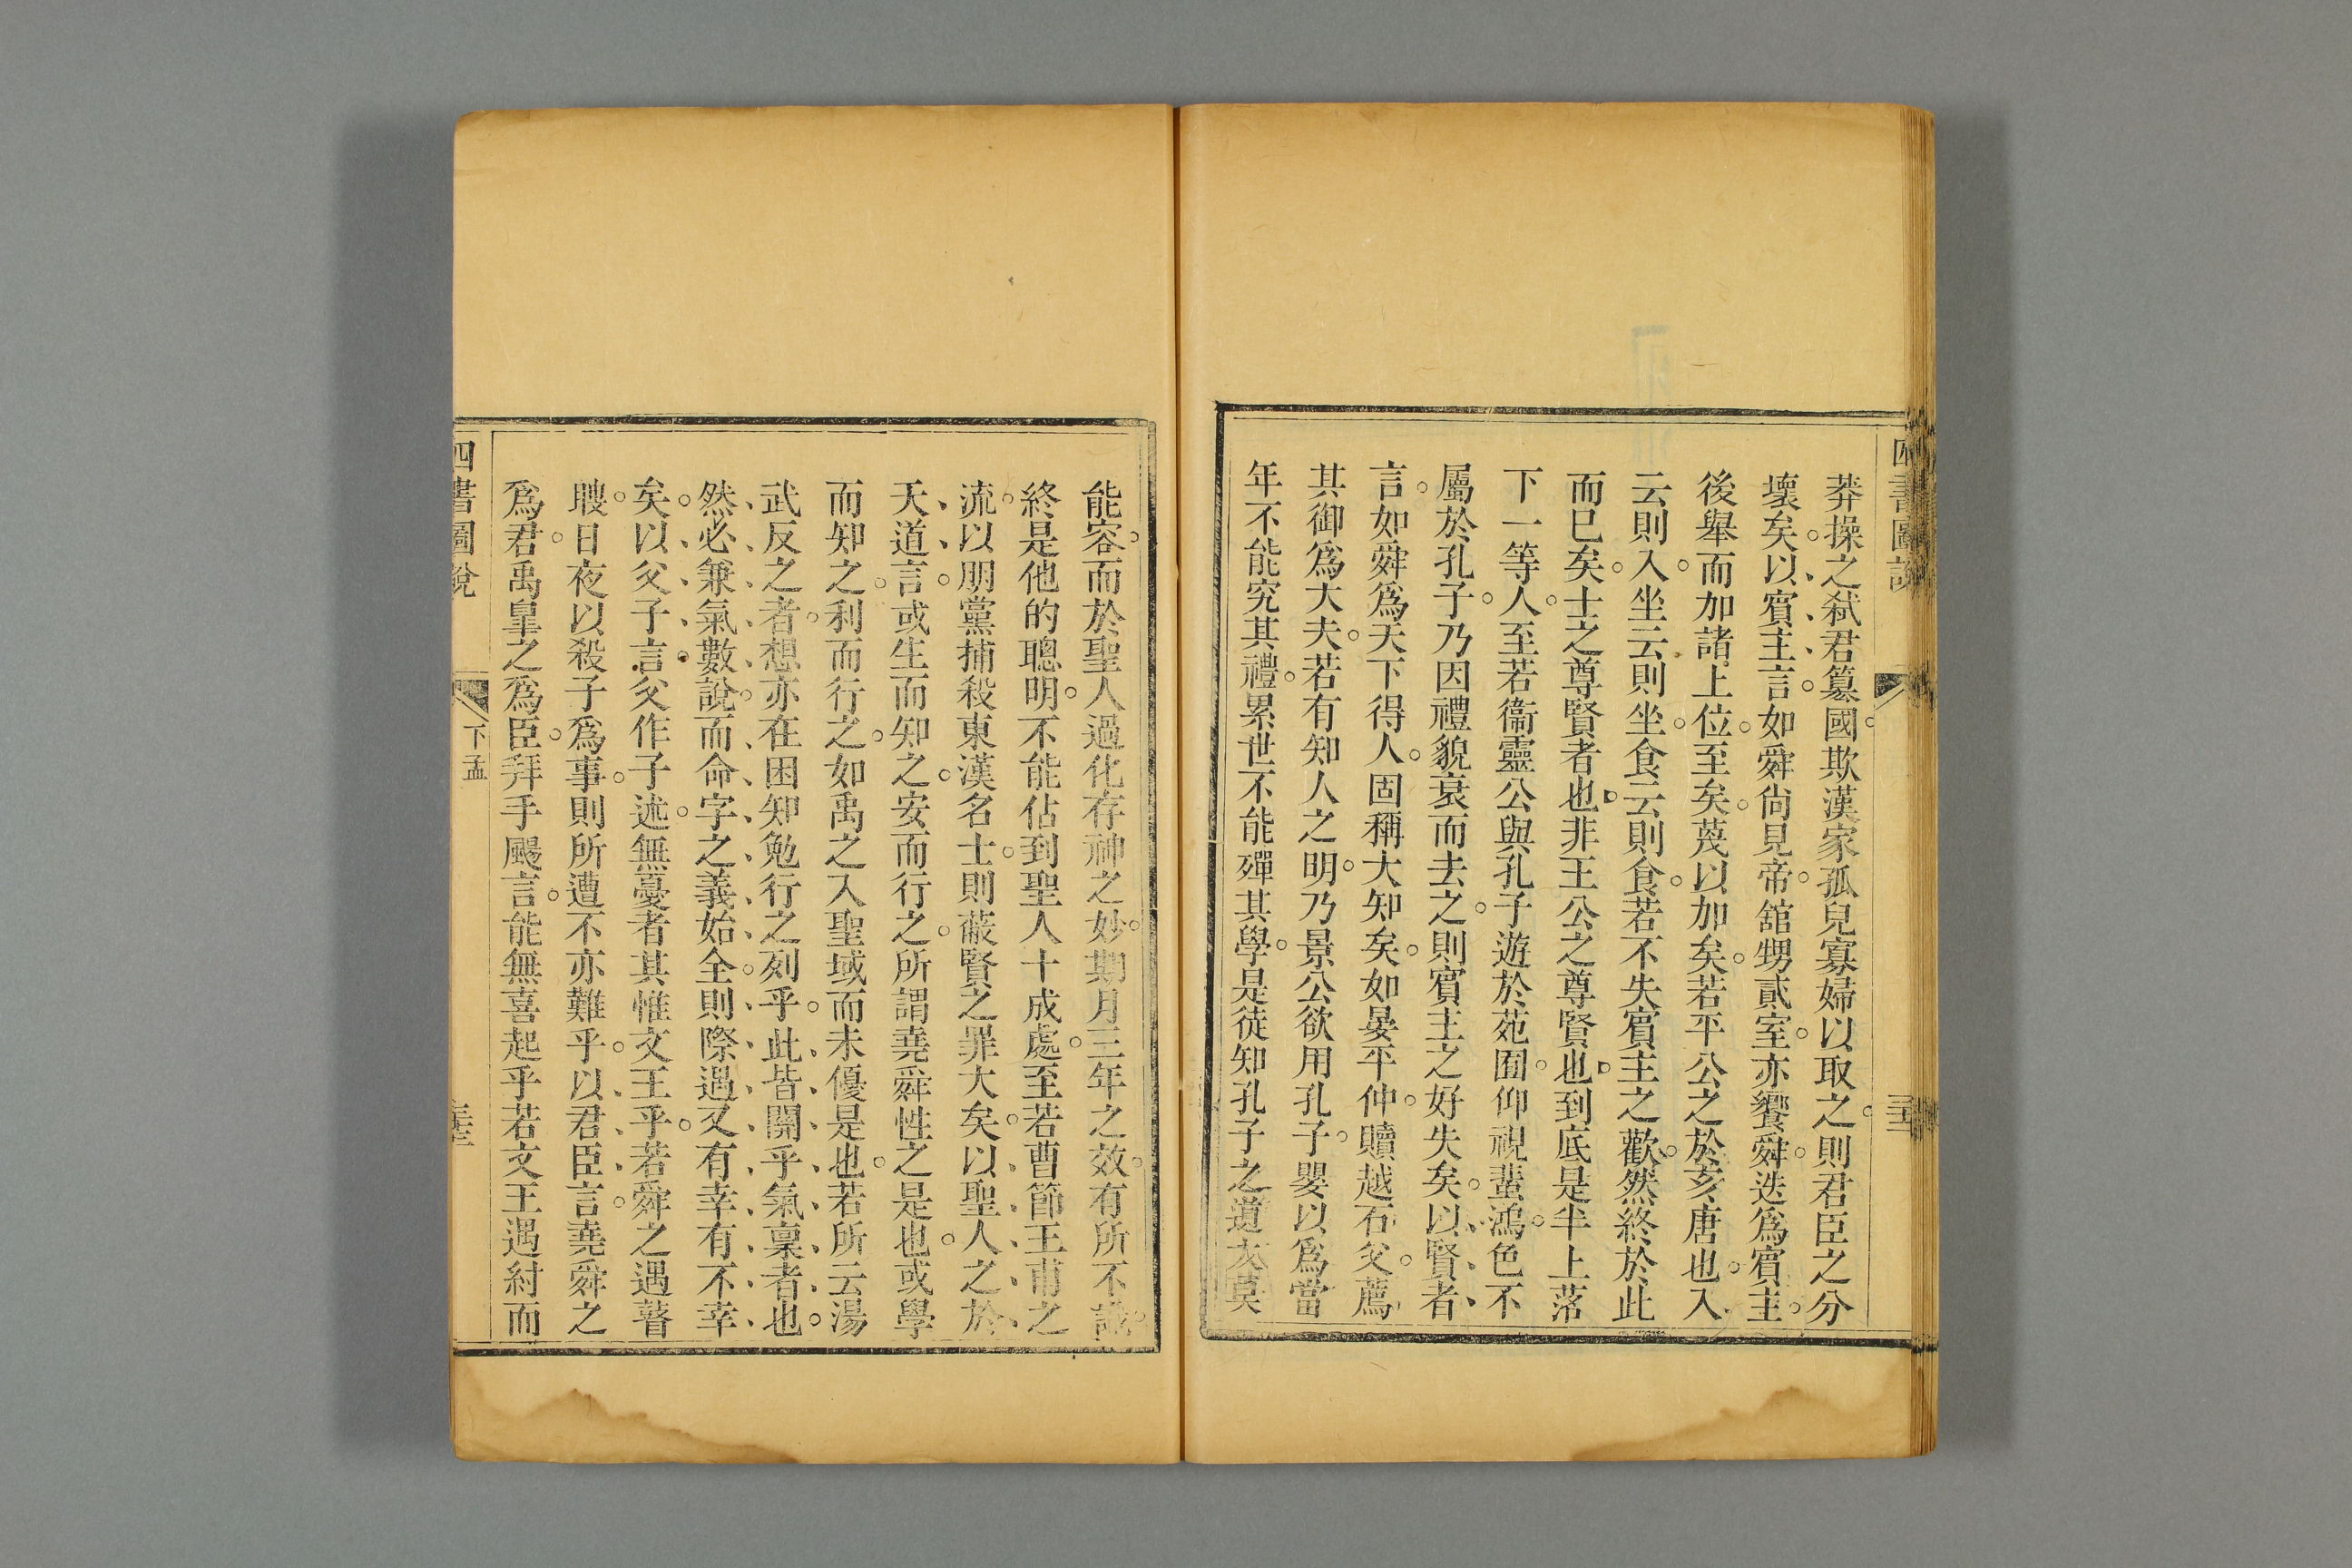 四書圖說
莽操之弑君篡國欺漢家孤兒寡婦以取之則君臣之分
壞矣以賓主言如舜尚見帝舘甥貳室亦饗舜迭爲賓主
後舉而加諸上位至矣蔑以加矣若平公之於亥唐也入
云則入坐云則坐食云則食若不失賓主之歡然終於此
而已矣士之尊賢者也非王公之尊賢也到底是半上落
下一等人至若衞靈公與孔子遊於苑囿仰視蜚鴻色不
屬於孔子乃因禮貌衰而去之則賓主之好失矣以賢者
言如舜爲天下得人固稱大知矣如晏平仲贖越石父薦
其御爲大夫若有知人之明乃景公欲用孔子嬰以爲當
年不能究其禮累世不能殫其學是徒知孔子之道大莫
能容而於聖人過化存神之妙期月三年之效有所不識
終是他的聰明不能佔到聖人十成處至若曹節王甫之
流以朋黨捕殺東漢名士則蔽賢之罪大矣以聖人之於
天道言或生而知之安而行之所謂堯舜性之是也或學
而知之利而行之如禹之入聖域而未優是也若所云湯
武反之者想亦在困知勉行之列乎此皆關乎氣稟者也
然必兼氣數說而命字之義始全則際遇又有幸有不幸
矣以父子言父作子述無憂者其惟文王乎若舜之遇瞽
瞍日夜以殺子爲事則所遭不亦難乎以君臣言堯舜之
爲君禹皋之爲臣拜手颺言能無喜起乎若文王遇紂而
四書圖說
下孟